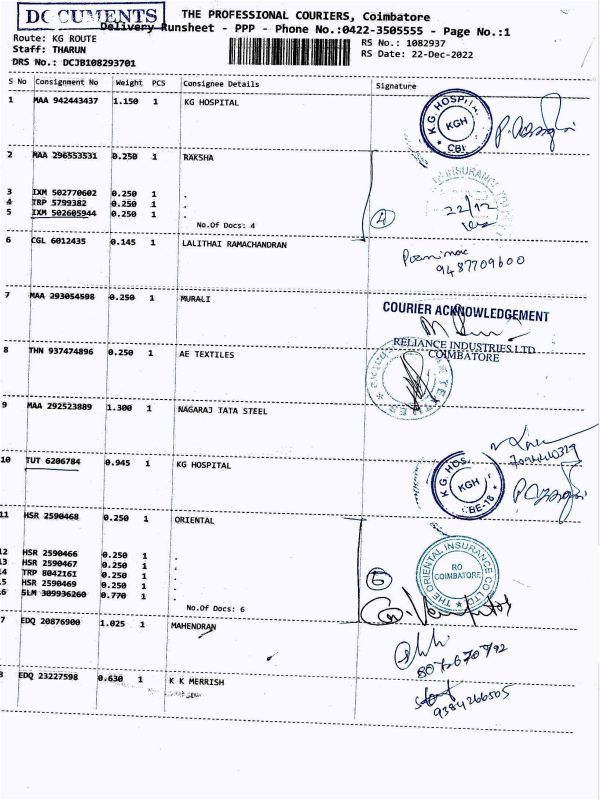 DOCUMENTS
THE PROFESSIONAL COURIERS, Coimbatore
Delivery Runsheet - PPP - Phone No.:0422-3505555 - Page No.:1
Route: KG ROUTE
Staff: THARUN
DRS No.: DCJB108293701
RS No.: 1082937
RS Date: 22-Dec-2022
S No Consignment No Weight PCS Consignee Details Signature
1 MAA 942443437 1.150 1 KG HOSPITAL
K.G. HOSPITAL
KGH
2 MAA 296553531 0.250 1 RAKSHA
3 IXM 502770602 0.250 1 .
4 TRP 5799382 0.250 1 .
5 IXM 502605944 0.250 1 .
No.Of Docs: 4
4
22/12
6 CGL 6012435 0.145 1 LALITHAI RAMACHANDRAN
9487709600
7 MAA 293054598 0.250 1 MURALI
COURIER ACKNOWLEDGEMENT
RELIANCE INDUSTRIES LTD
COIMBATORE
8 THN 937474896 0.250 1 AE TEXTILES
9 MAA 292523889 1.300 1 NAGARAJ TATA STEEL
10 TUT 6206784 0.945 1 KG HOSPITAL
K.G. HOS
KGH
CBE-18
11 HSR 2590468 0.250 1 ORIENTAL
12 HSR 2590466 0.250 1 .
13 HSR 2590467 0.250 1 .
14 TRP 8042161 0.250 1 .
15 HSR 2590469 0.250 1 .
6 SLM 309936260 0.770 1 .
No.Of Docs: 6
6
THE ORIENTAL INSURANCE CO LTD
RO
COIMBATORE
7 EDQ 20876900 1.025 1 MAHENDRAN
8 EDQ 23227598 0.630 1 K K MERRISH
9384266505